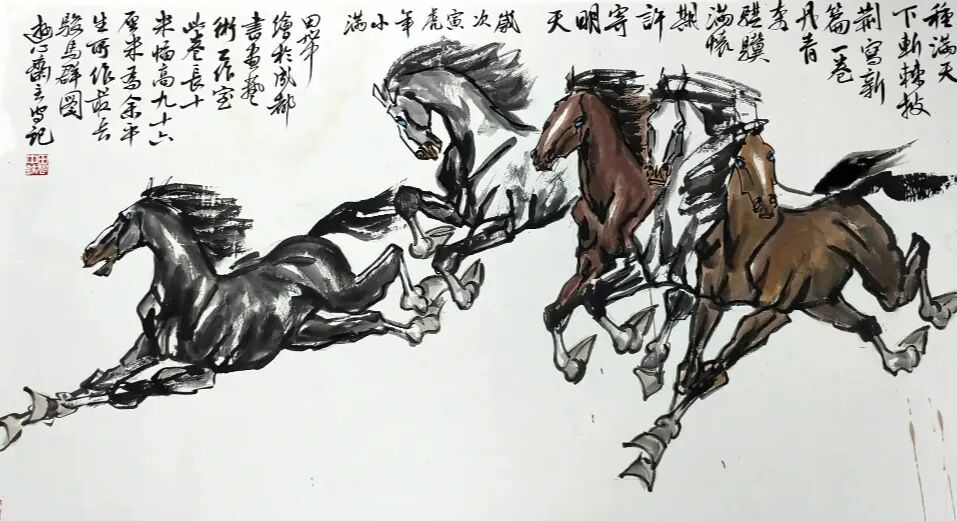 種滿天
下斬棘披
荊寫新
篇一卷
丹青
騏驥
滿懷
期
許
寄
明
天
歲
次
寅
虎
年
小
滿
繪於成都
書畫藝
術工作室
此卷長十
米幅高九十六
厘米為余平
生所作最長
駿馬群圖
記